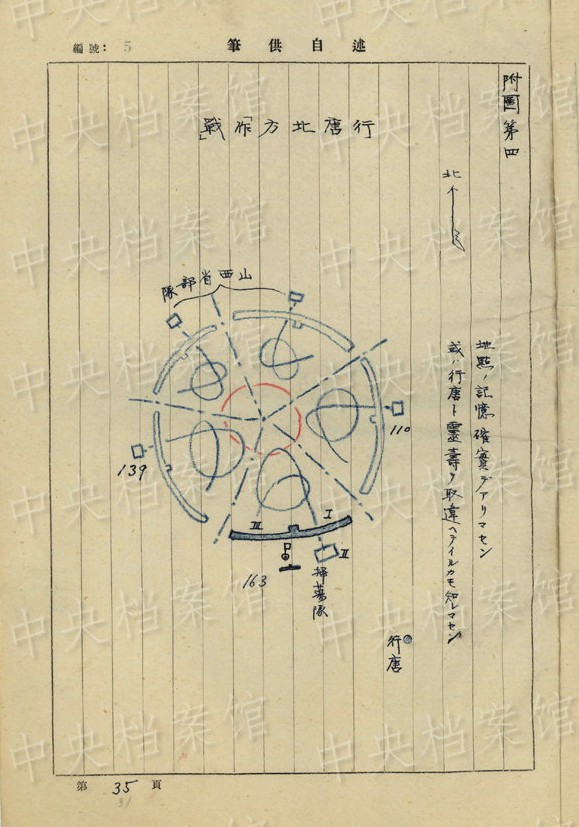 述自供筆
編號: 5
附圖第四
行唐北方「作戰」
北
地點ノ記憶確實デアリマセン
或ハ行唐ト靈壽ヲ取違ヘテイルカモ知レマセン
山西省部隊
110
139
163
I
II
III
掃蕩隊
行唐
第 35 頁
31
中央档案馆